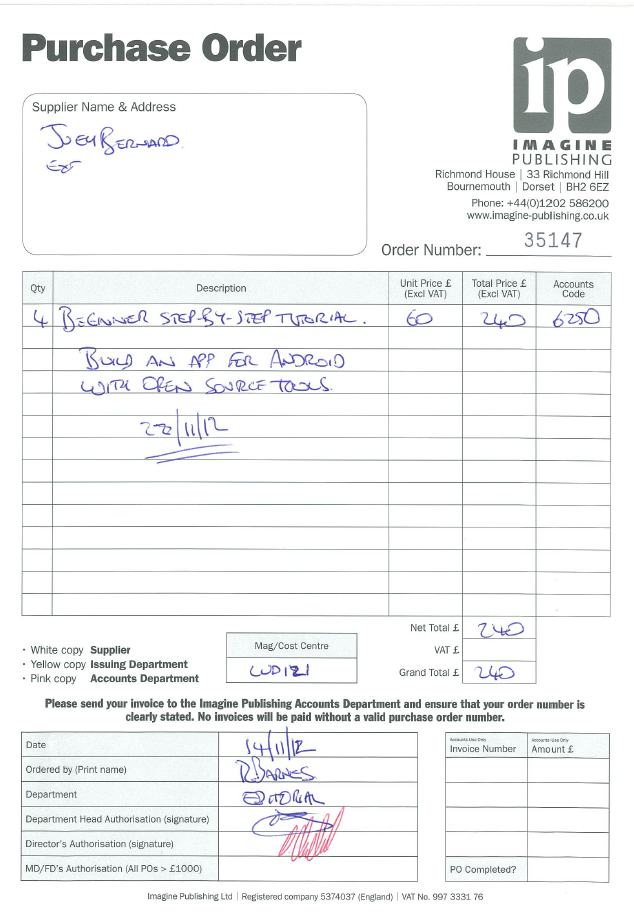 Purchase Order
ip
IMAGINE
PUBLISHING
Supplier Name & Address
JOEY BERNARD.
EXT
Richmond House | 33 Richmond Hill
Bournemouth | Dorset | BH2 6EZ
Phone: +44(0)1202 586200
www.imagine-publishing.co.uk
Order Number: 35147
Qty Description Unit Price £ (Excl VAT) Total Price £ (Excl VAT) Accounts Code
4 BEGINNER STEP-BY-STEP TUTORIAL. 60 240 6250
BUILD AN APP FOR ANDROID
WITH OPEN SOURCE TOOLS.
22/11/12
Net Total £ 240
VAT £
Grand Total £ 240
· White copy Supplier
· Yellow copy Issuing Department
· Pink copy Accounts Department
Mag/Cost Centre
LUD121
Please send your invoice to the Imagine Publishing Accounts Department and ensure that your order number is
clearly stated. No invoices will be paid without a valid purchase order number.
Date 14/11/12
Ordered by (Print name) R.BARNES
Department EDITORIAL
Department Head Authorisation (signature)
Director's Authorisation (signature)
MD/FD's Authorisation (All POs > £1000)
Accounts Use Only Accounts Use Only
Invoice Number Amount £
PO Completed?
Imagine Publishing Ltd | Registered company 5374037 (England) | VAT No. 997 3331 76